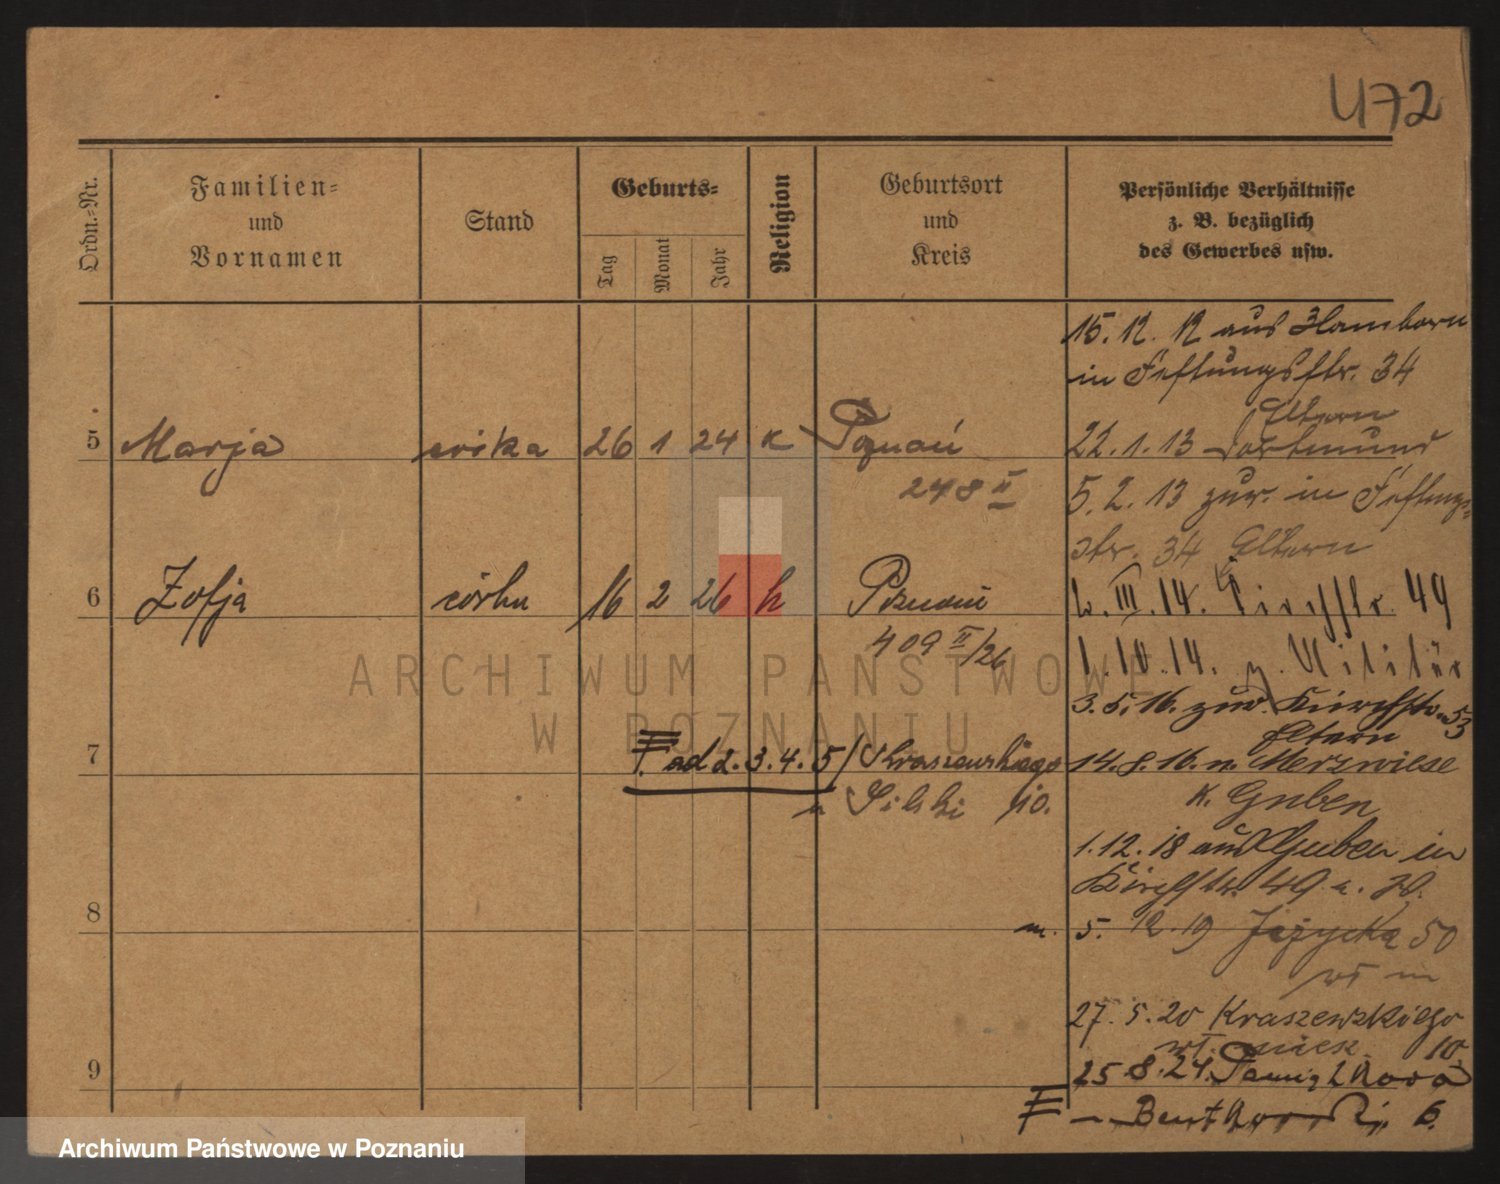 472
Ordn.-Nr.
Familien-
und
Vornamen
Stand
Geburts-
Tag
Monat
Jahr
Religion
Geburtsort
und
Kreis
Persönliche Verhältnisse
z. B. bezüglich
des Gewerbes usw.
15. 12. 12 aus Hamborn
in Festungsstr. 34
Eltern
5 Marja córka 26 1 24 k Poznań
248 II
22. 1. 13 Dortmund
5. 2. 13 zur. in Festungs-
str. 34 Eltern
6 Zofja córka 16 2 26 k Poznań
409 II/26
2. III. 14. Kirchstr. 49
1. 10. 14. z. Militär
3. 5. 16. zur. Kirchstr. 53
Eltern
7
F. ad 2. 3. 4. 5 / Kraszewskiego
10.
14. 8. 16. n. Merzwiese
K. Guben
1. 12. 18 aus Guben in
Kirchstr. 49
8
5. 12. 19 Jeżycka 50
wł m
27. 5. 20 Kraszewskiego
wł. 10.
9
25 8. 24.
6.
ARCHIWUM PAŃSTWOWE
W POZNANIU
Archiwum Państwowe w Poznaniu